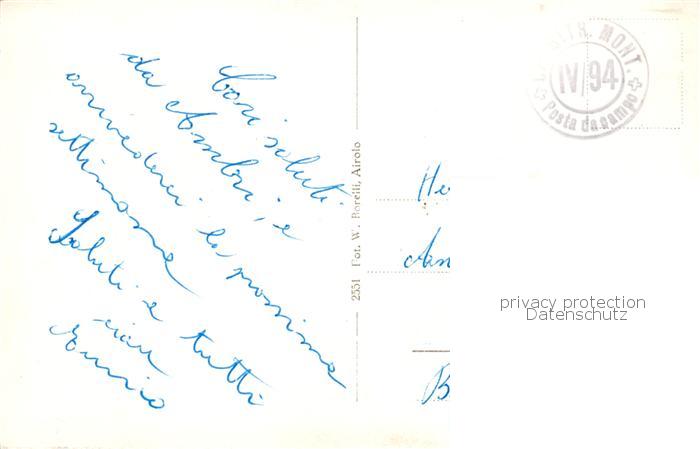 Cari saluti
da Ambrì, e
arrivederci la prossima
settimana
Saluti a tutti
ciau
Enrico
2551 Fot. W. Borelli, Airolo
MONT.
IV 94
Posta da campo
He
An
B
privacy protection
Datenschutz